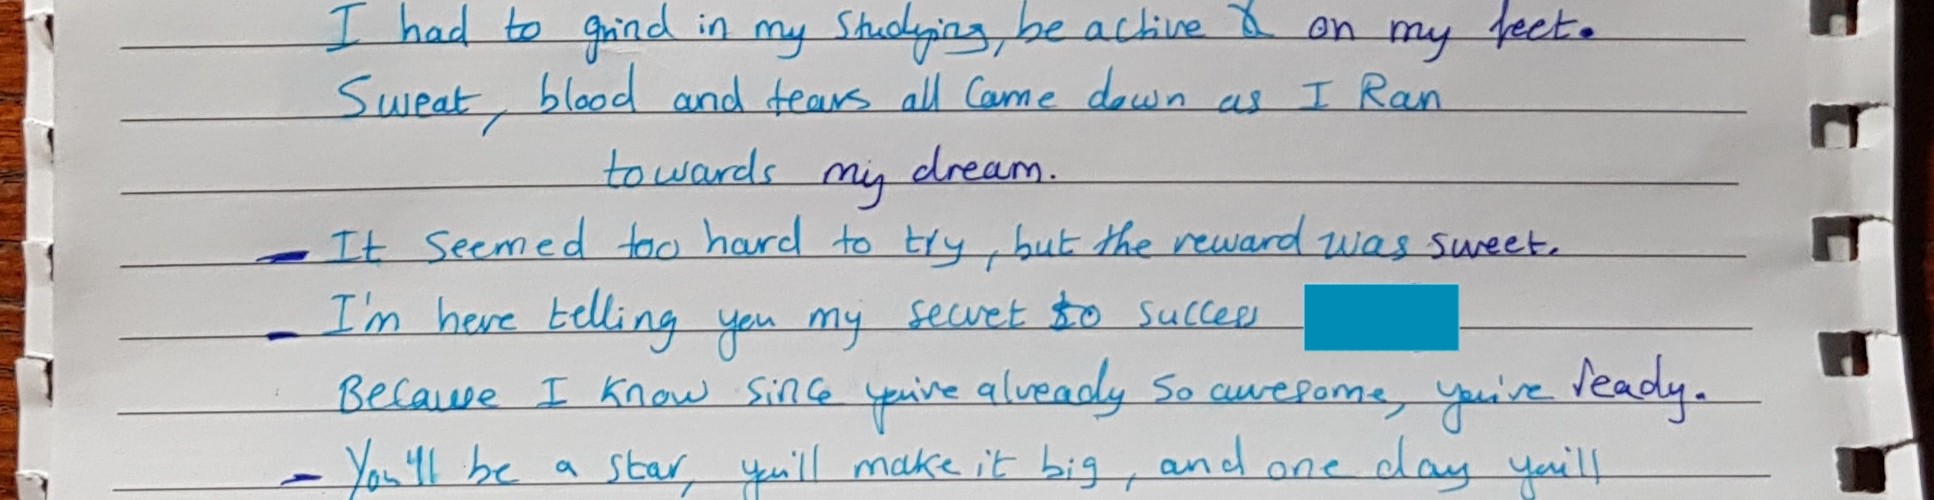 I had to grind in my studying, be active & on my feet.
Sweat, blood and tears all came down as I Ran
towards my dream.
- It seemed too hard to try, but the reward was sweet.
- I'm here telling you my secret to success
Because I know since you're already so awesome, you're ready.
- You'll be a star, you'll make it big, and one day you'll